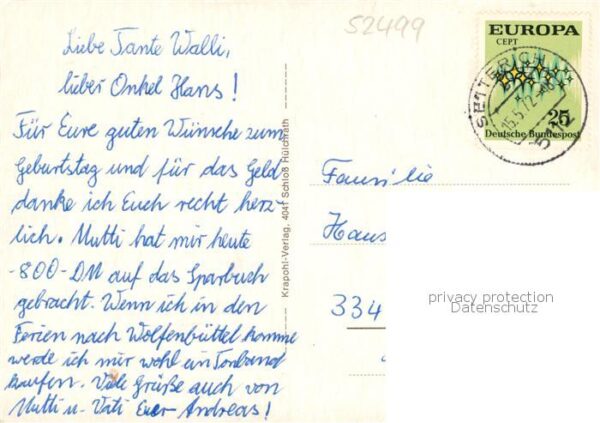 52499
Liebe Tante Walli,
lieber Onkel Hans!
Für Eure guten Wünsche zum
Geburtstag und für das Geld
danke ich Euch recht herz-
lich. Mutti hat mir heute
-800-DM auf das Sparbuch
gebracht. Wenn ich in den
Ferien nach Wolfenbüttel komme
werde ich mir wohl ein Tonband
kaufen. Viele Grüße auch von
Mutti u. Vati Euer Andreas!
Krapohl-Verlag, 4041 Schloß Hülchrath
EUROPA
CEPT
25
Deutsche Bundespost
SETTERICH
15.5.72
Familie
Hans
334
privacy protection
Datenschutz